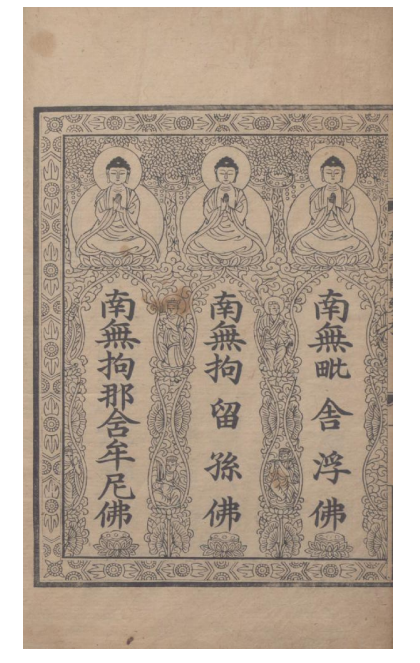 南無毗舍浮佛
南無拘留孫佛
南無拘那舍牟尼佛